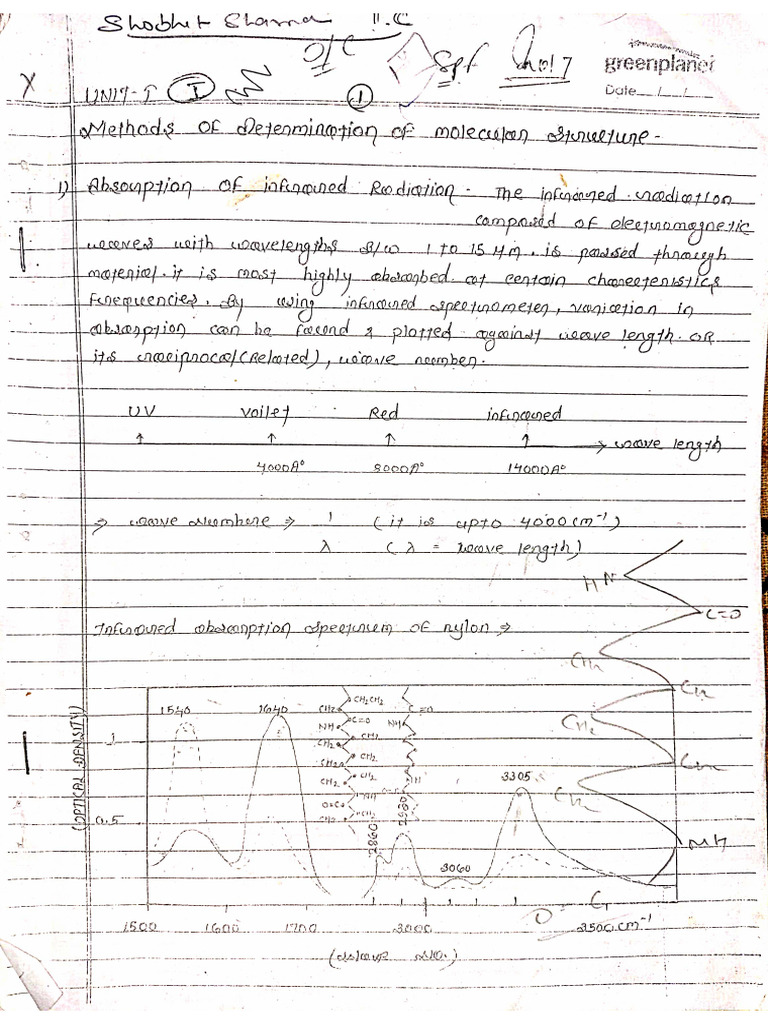 Shobhit Sharma
greenplanet
Date__/__/__
UNIT-I I
1
Methods of Determination of molecular structure-
1) Absorption of infrared Radiation- The infrared radiation
composed of electromagnetic
waves with wavelengths B/w 1 to 15 μm. is passed through
material. it is most highly absorbed at certain charecteristics
Frequencies. By using infrared spectrometer, variation in
absorption can be found & plotted against wave length OR
its reciprocal (Related), wave number.
UV Voilet Red infrared
wave length
4000A° 8000A° 14000A°
⇒ wave Numbere ⇒ 1 (it is upto 4000cm⁻¹)
λ (λ = wave length)
HN
C=O
Infrared absorption spectrum of nylon ⇒
1540 1640
CH2CH2
CH2 C=O
NH C=O NH
CH2 CH2
CH2 CH2
CH2 CH2
3305
CH2
(OPTICAL DENSITY)
1
0.5
2860 2930
3060
NH
1500 1600 1700 3000 3500 cm⁻¹
(wave no.)